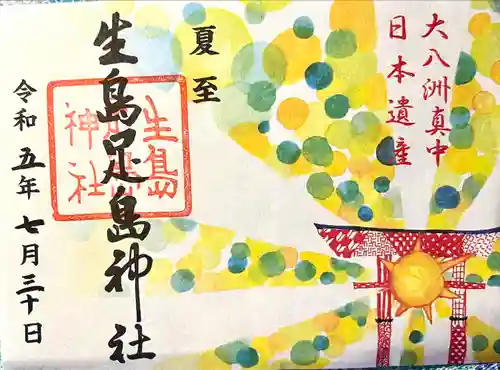 大八洲真中
日本遺産
夏至
生島足島神社
生島足島神社
令和五年七月三十日